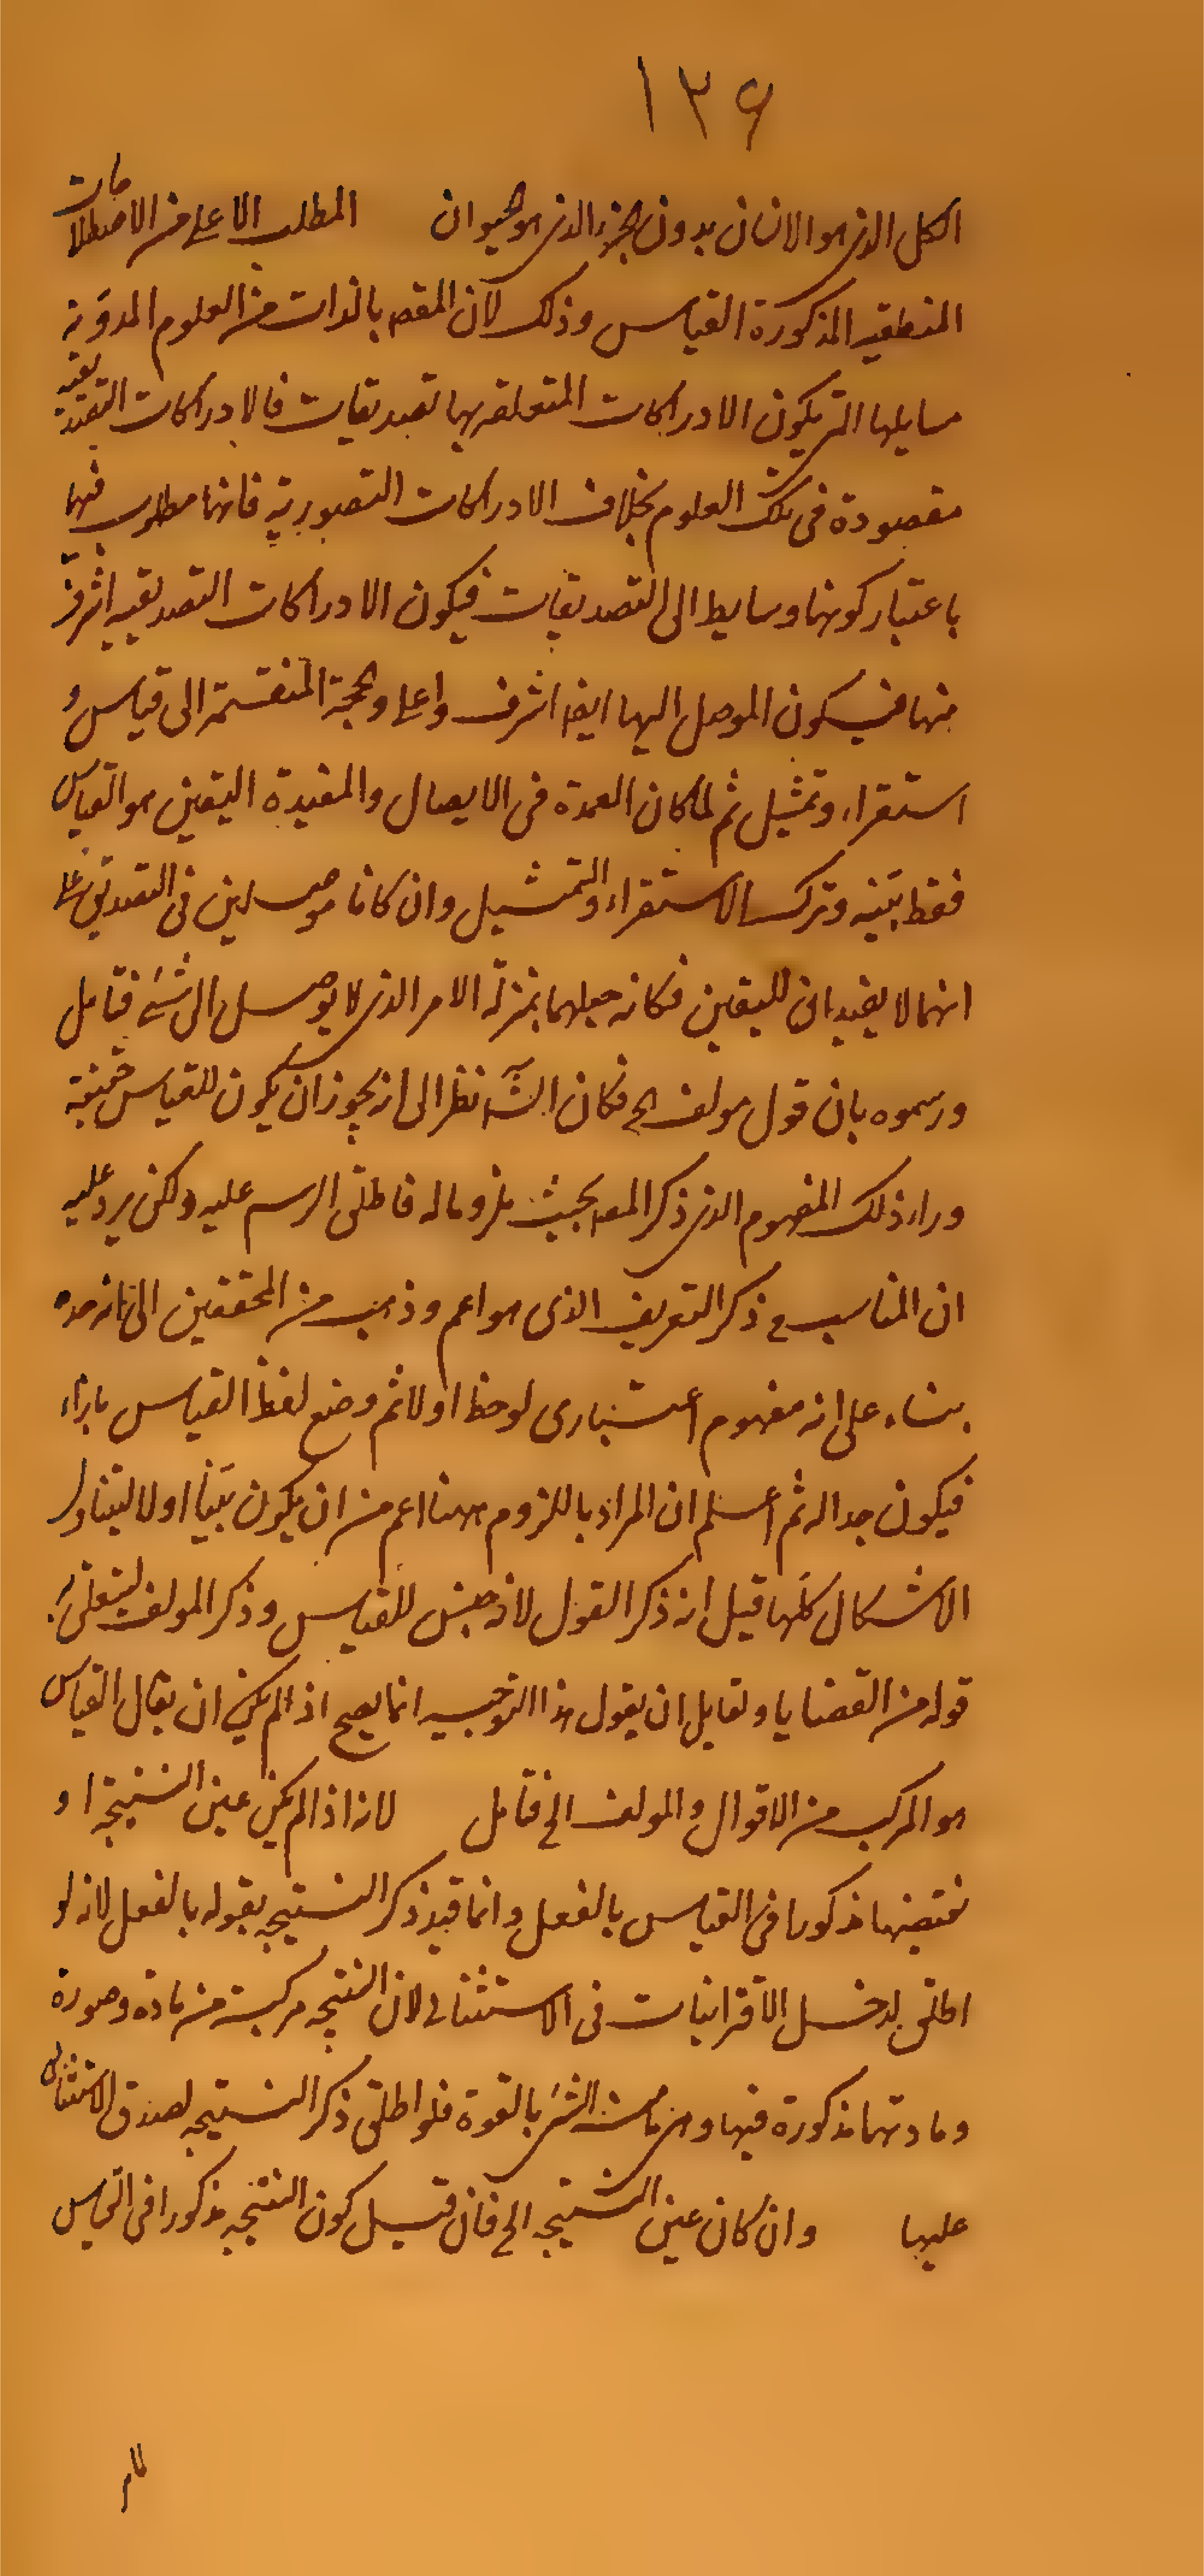 ١٣۶
الكل الذى هو الانسان بدون الجزء الذى هو الحيوان المطلب الاعلى من الاصطلاحات
المنطقية المذكورة القياس وذلك لان المقصد بالذات من العلوم المدونة
مسايلها التى يكون الادراكات المتعلقه بها تصديقات فالادراكات التصديقية
مقصودة فى تلك العلوم بخلاف الادراكات التصورية فانها مطلوب فيها
باعتبار كونها وسايط الى التصديقات فيكون الادراكات التصديقيه اشرف
منها فيكون الموصل اليها ايضا اشرف واعلى والحجة المنقسمة الى قياس و
استقراء وتمثيل ثم لما كان العمدة فى الايصال والمفيدة اليقين هو القياس
فقط بيّنه وترك الاستقراء والتمثيل وان كانا موصلين فى التصديق على
انهما لا يفيدان لليقين فكانه جعلهما بمنزلة الامر الذى لا يوصل الى شئ فتامل
ورسموه بان قول مولف الخ فكان الشه نظر الى انه يجوز ان يكون للقياس حقيقة
وراء ذلك المفهوم الذى ذكر المص بحيث ملزوما له فاطلق الرسم عليه ولكن يرد عليه
ان المناسب ح ذكر التعريف الذى هو اعم وذهب من المحققين الى انه حده
بناء على انه مفهوم اعتبارى لوحظ اولا ثم وضع لفظ القياس بازاء
فيكون حدا له ثم اعلم ان المراد باللزوم ههنا اعم من ان يكون بيّنا اولا ليتناول
الاشكال كلها قيل انه ذكر القول لانه جنس للقياس وذكر المولف ليتعلق به
قوله من القضايا ولقايل ان يقول هذا التوجيه انما يصح اذا لم يكن ان يقال القياس
هو المركب من الاقوال والمولف الخ فتامل لانه اذا لم يكن عين النتيجة او
نقيضها مذكورا فى القياس بالفعل وانما قيد ذكر النتيجه بقوله بالفعل لانه لو
اطلق لدخل الاقترانيات فى الاستثنائى لان النتيجه مركبة من مادة وصورة
ومادتها مذكورة فيها وهى ما منه الشئ بالقوة فلو اطلق ذكر النتيجه لصدق الاستثنائى
عليها وان كان عين النتيجه الخ فان قيل كون النتيجه مذكورا فى القياس